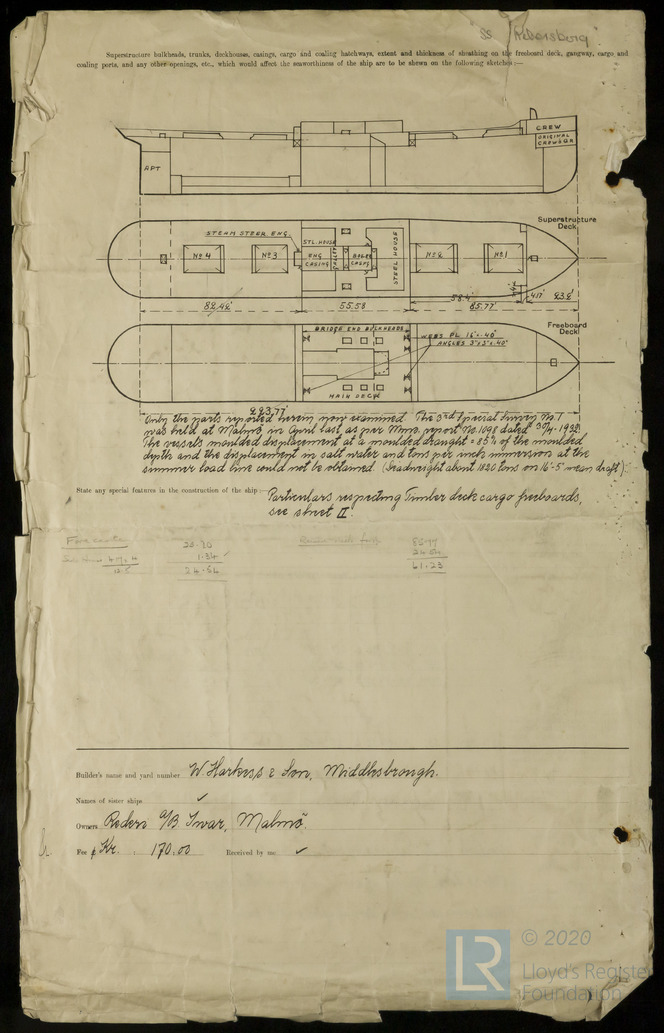 SS Petersburg
Superstructure bulkheads, trunks, deckhouses, casings, cargo and coaling hatchways, extent and thickness of sheathing on the freeboard deck, gangway, cargo and
coaling ports, and any other openings, etc., which would affect the seaworthiness of the ship are to be shewn on the following sketches:—
CREW
ORIGINAL
APT
Superstructure
Deck
STEAM STEER ENG.
STL. HOUSE
Nº 4
Nº 3
ENG
CASING
GALLEY
BOILER
CASING
STEEL HOUSE
Nº 2
Nº 1
82.42'
55.58
58.4'
85.77'
23.2'
Freeboard
Deck
BRIDGE END BULKHEADS
WEBS PL 16"×.40"
ANGLES 3"×3"×.40"
MAIN DECK
223.77'
Only the parts reported herein now examined. The 3rd Special Survey No. 1
was held at Malmö in April last, as per Mmo. report No. 1098 dated 30/4-1932.
The vessels moulded displacement at a moulded draught = 85% of the moulded
depth and the displacement in salt water and tons per inch immersion at the
summer load line could not be obtained. (Deadweight about 1820 tons on 16'-5" mean draft).
State any special features in the construction of the ship:— Particulars respecting Timber deck cargo freeboards,
see sheet II.
Forecastle
23.20
1.34 ✓
24.54
85.77
24.54
61.23
Builder's name and yard number W. Harkess & Son, Middlesbrough.
Names of sister ships ✓
Owners Rederi A/B Iwar, Malmö.
Fee £ Kr. 170.00 Received by me ✓
LR
© 2020
Lloyd's Register
Foundation